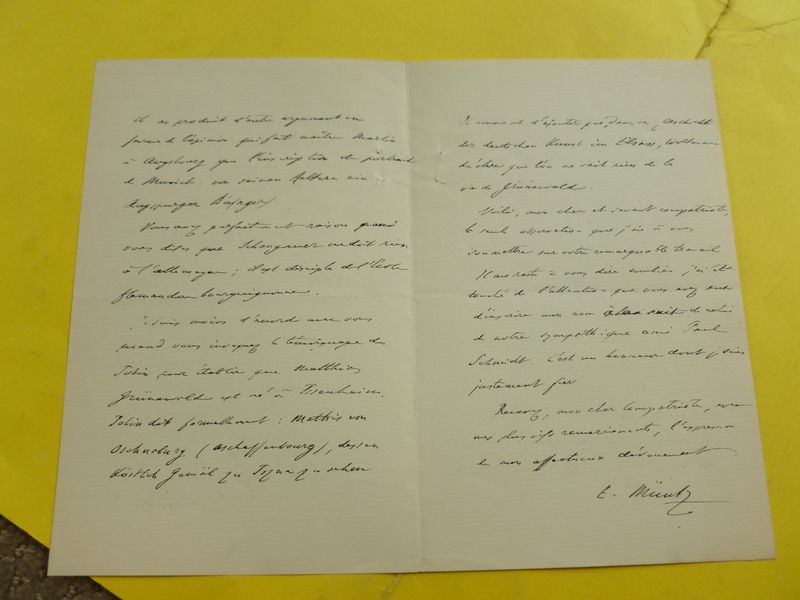 il ne produit d'autre argument en
faveur de l'opinion qui fait naître Martin
à Augsbourg que l'inscription du portrait
de Munich : von seinen Aeltern ein
Augspurger Bürger.
Vous avez parfaitement raison quand
vous dites que Schongauer ne doit rien
à l'allemagne ; il est disciple de l'Ecole
flamande bourguignonne.
Je suis moins d'accord avec vous
quand vous invoquez le témoignage de
Jobin pour établir que Matthias
Grünewald est né à Issenheim.
Jobin dit formellement : Mathis von
Oschnaburg (Aschaffenbourg), dessen
köstlich Gemäl zu Isna zu sehen
Je viens d'ajouter que, dans sa Geschichte
der deutschen Kunst im Elsass, Woltmann
déclare que l'on ne sait rien de la
vie de Grünewald.
Voilà, mon cher et savant compatriote,
la seule observation que j'aie à vous
soumettre sur votre remarquable travail.
Il me reste à vous dire combien j'ai été
touché de l'attention que vous avez eue
d'inscrire mon nom à la suite de celui
de notre sympathique ami Paul
Schmidt. C'est un honneur dont je suis
justement fier
Recevez, mon cher Compatriote, avec
mes plus vifs remerciments, l'expression
de mon affectueux dévouement
E. Müntz